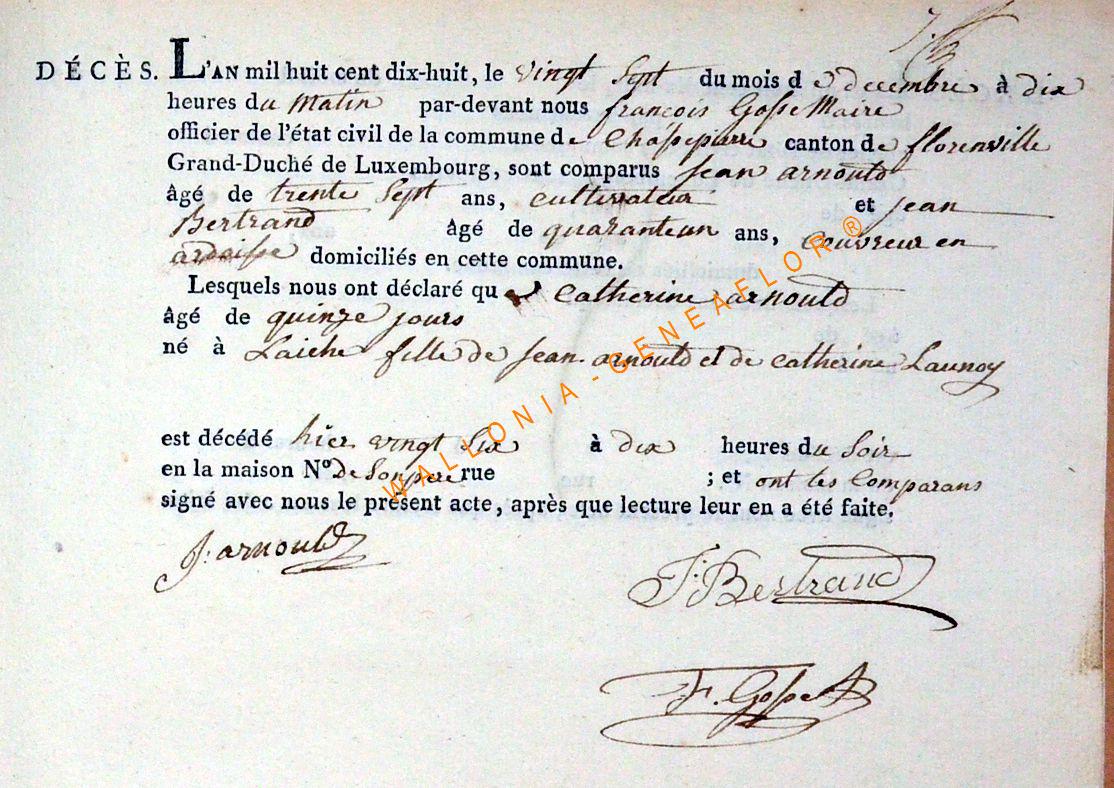 DÉCÈS. L'AN mil huit cent dix-huit, le vingt Sept du mois de decembre à dix
heures du Matin par-devant nous françois Gosse Maire
officier de l'état civil de la commune de Chassepierre canton de florenville
Grand-Duché de Luxembourg, sont comparus Jean arnould
âgé de trente Sept ans, cultivateur et Jean
Bertrand âgé de quarantun ans, Couvreur en
ardoisse domiciliés en cette commune.
Lesquels nous ont déclaré que Catherine arnould
âgé de quinze jours
né à Laiche fille de Jean arnould et de Catherine Launoy
est décédé hier vingt Six à dix heures du Soir
en la maison Nº De Son pere rue ; et ont les Comparans
signé avec nous le présent acte, après que lecture leur en a été faite.
J. arnould
J. Bertrand
F. Gosse
WALLONIA-GENEAFLOR ®